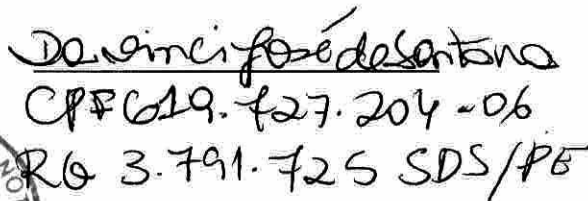 Davinci José de Santana
CPF 619.727.204-06
RG 3.791.725 SDS/PE
NO